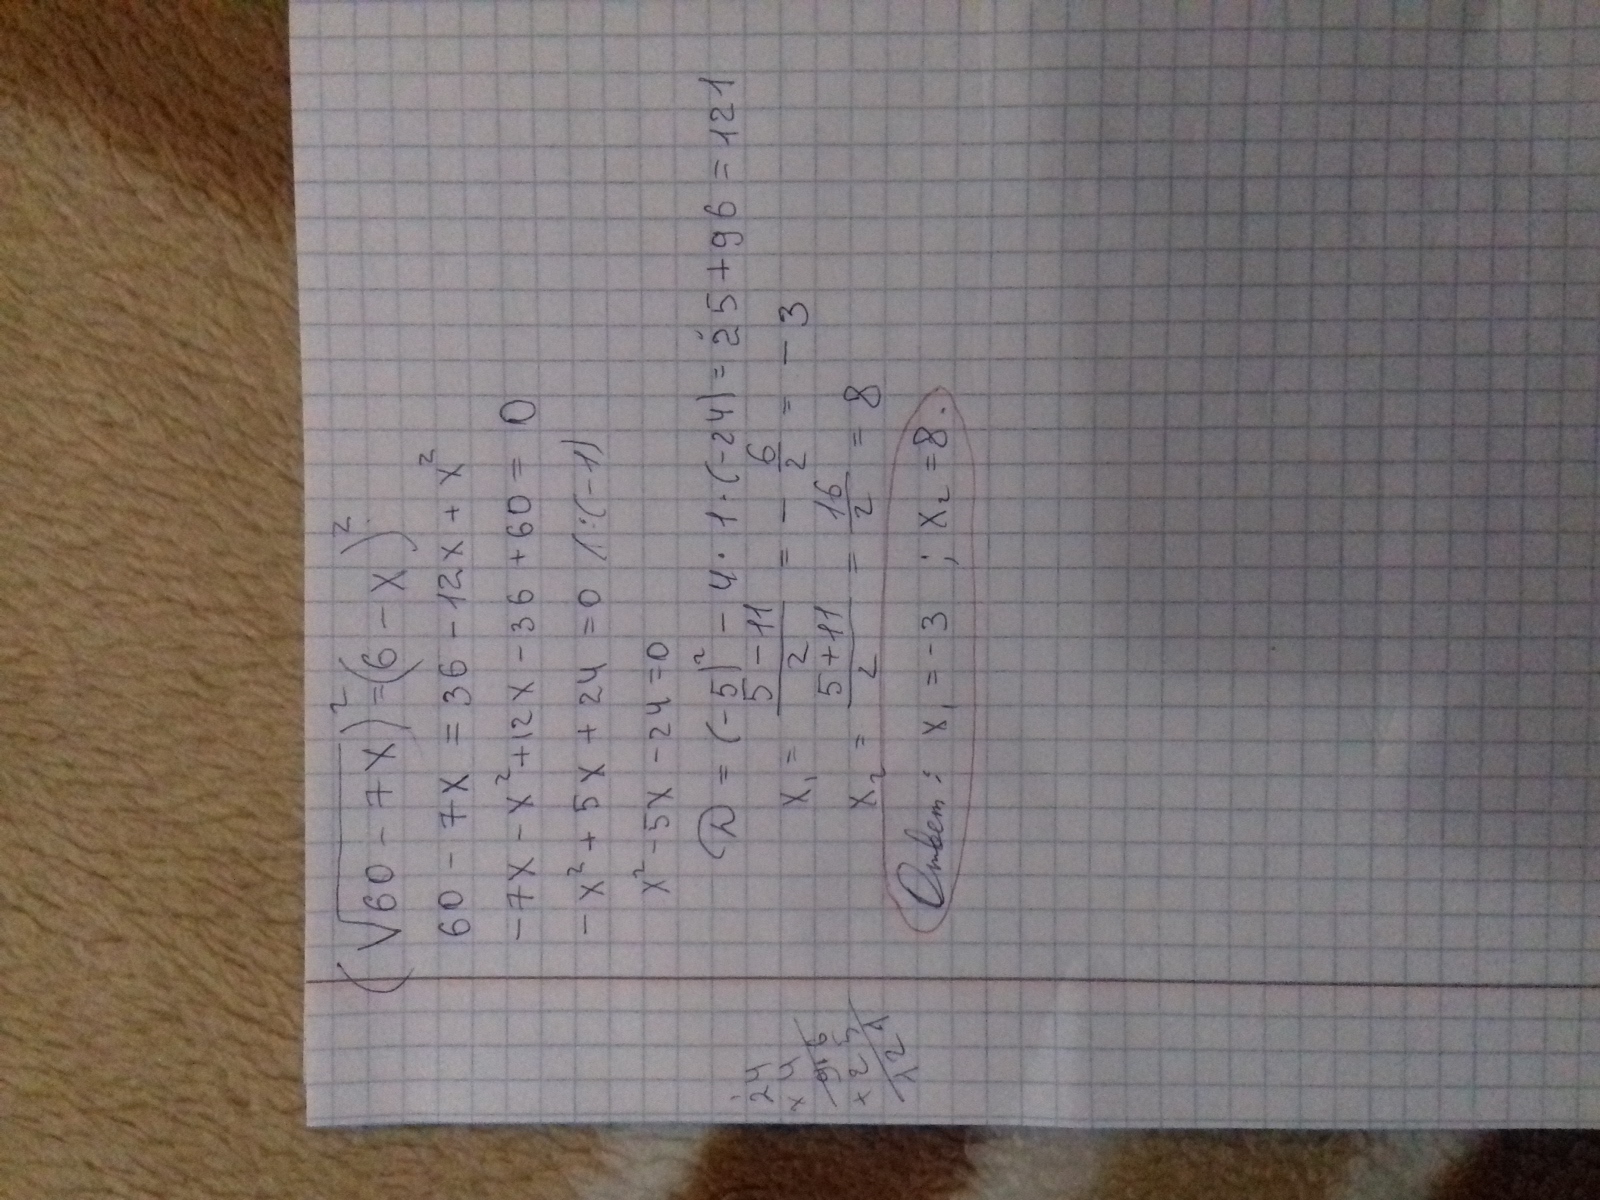 (√60 - 7x)² = (6 - x)²
60 - 7x = 36 - 12x + x²
-7x - x² + 12x - 36 + 60 = 0
-x² + 5x + 24 = 0 /:(-1)
x² - 5x - 24 = 0
D = (-5)² - 4 · 1 · (-24) = 25 + 96 = 121
x₁ = (5 - 11)/2 = - 6/2 = - 3
x₂ = (5 + 11)/2 = 16/2 = 8
Ответ: x₁ = -3 ; x₂ = 8.
24
× 4
96
+ 25
121